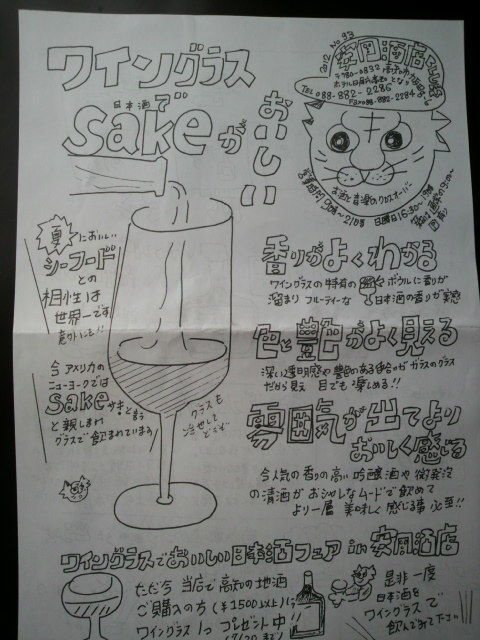 ワイングラス
日本酒で
sakeが
おいしい
2012 No.93
安岡酒店
〒780-0832
TEL 088-882-2286
Fax 088-882-2284
営業時間 9時~21時
夏においしい
シーフード
との
相性は
世界一です
意外かも!!
今アメリカの
ニューヨークでは
sake サキと言う
と親しまれ
グラスで飲まれています
グラスも
冷やして
どうぞ
香りがよくわかる
ワイングラスの特有の ボウルに香りが
溜まり フルーティーな 日本酒の香りが実感
色と艶色がよく見える
深い透明感や艶のある色が ガラスのグラス
だから見え 目でも楽しめる!!
雰囲気が出てより
おいしく感じる
今人気の香りの高い吟醸酒や微発泡
の清酒が おシャレなムードで飲めて
より一層 美味しく感じる事 必至!!
ワイングラスでおいしい日本酒フェア in 安岡酒店
ただ今 当店で高知の地酒
ご購入の方(¥1500以上)に
ワイングラス 1つ プレゼント中!!
是非一度
日本酒を
ワイングラスで
飲んでみて下さい